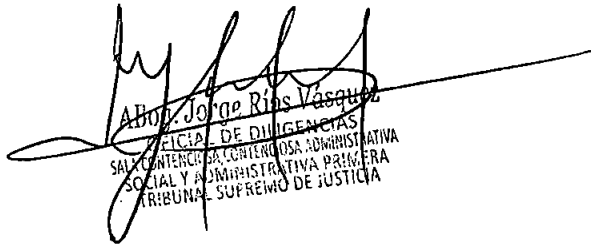 Abog. Jorge Ríos Vásquez
OFICIAL DE DILIGENCIAS
SALA CONTENCIOSA CONTENCIOSA ADMINISTRATIVA
SOCIAL Y ADMINISTRATIVA PRIMERA
TRIBUNAL SUPREMO DE JUSTICIA